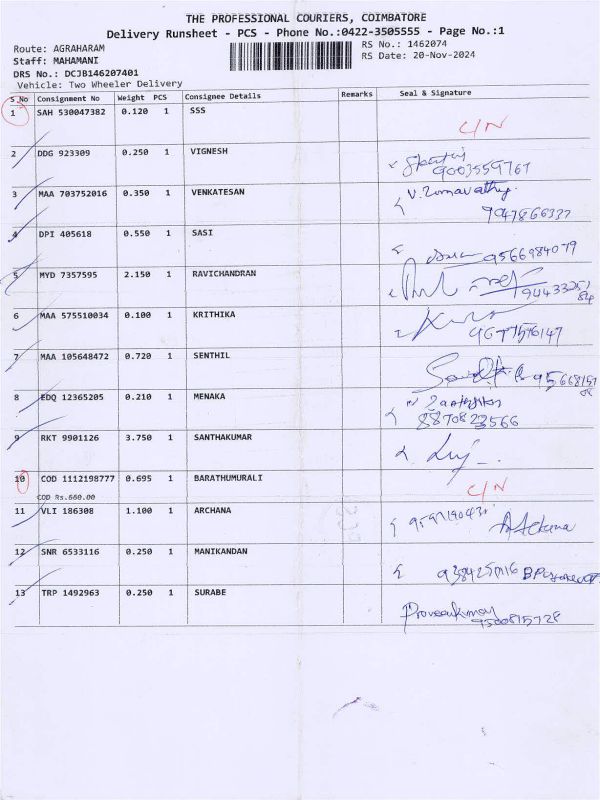 THE PROFESSIONAL COURIERS, COIMBATORE
Delivery Runsheet - PCS - Phone No.:0422-3505555 - Page No.:1
Route: AGRAHARAM
RS No.: 1462074
Staff: MAHAMANI
RS Date: 20-Nov-2024
DRS No.: DCJB146207401
Vehicle: Two Wheeler Delivery
S.No Consignment No Weight PCS Consignee Details Remarks Seal & Signature
1 SAH 530047382 0.120 1 SSS
C/N
2 DDG 923309 0.250 1 VIGNESH
9003559767
3 MAA 703752016 0.350 1 VENKATESAN
9047866337
4 DPI 405618 0.550 1 SASI
9566984079
5 MYD 7357595 2.150 1 RAVICHANDRAN
6 MAA 575510034 0.100 1 KRITHIKA
9677576147
7 MAA 105648472 0.720 1 SENTHIL
8 EDQ 12365205 0.210 1 MENAKA
8870823566
9 RKT 9901126 3.750 1 SANTHAKUMAR
10 COD 1112198777 0.695 1 BARATHUMURALI
C/N
COD Rs.660.00
11 VLI 186308 1.100 1 ARCHANA
Archana
12 SNR 6533116 0.250 1 MANIKANDAN
13 TRP 1492963 0.250 1 SURABE
Praveenkumar
9500815728